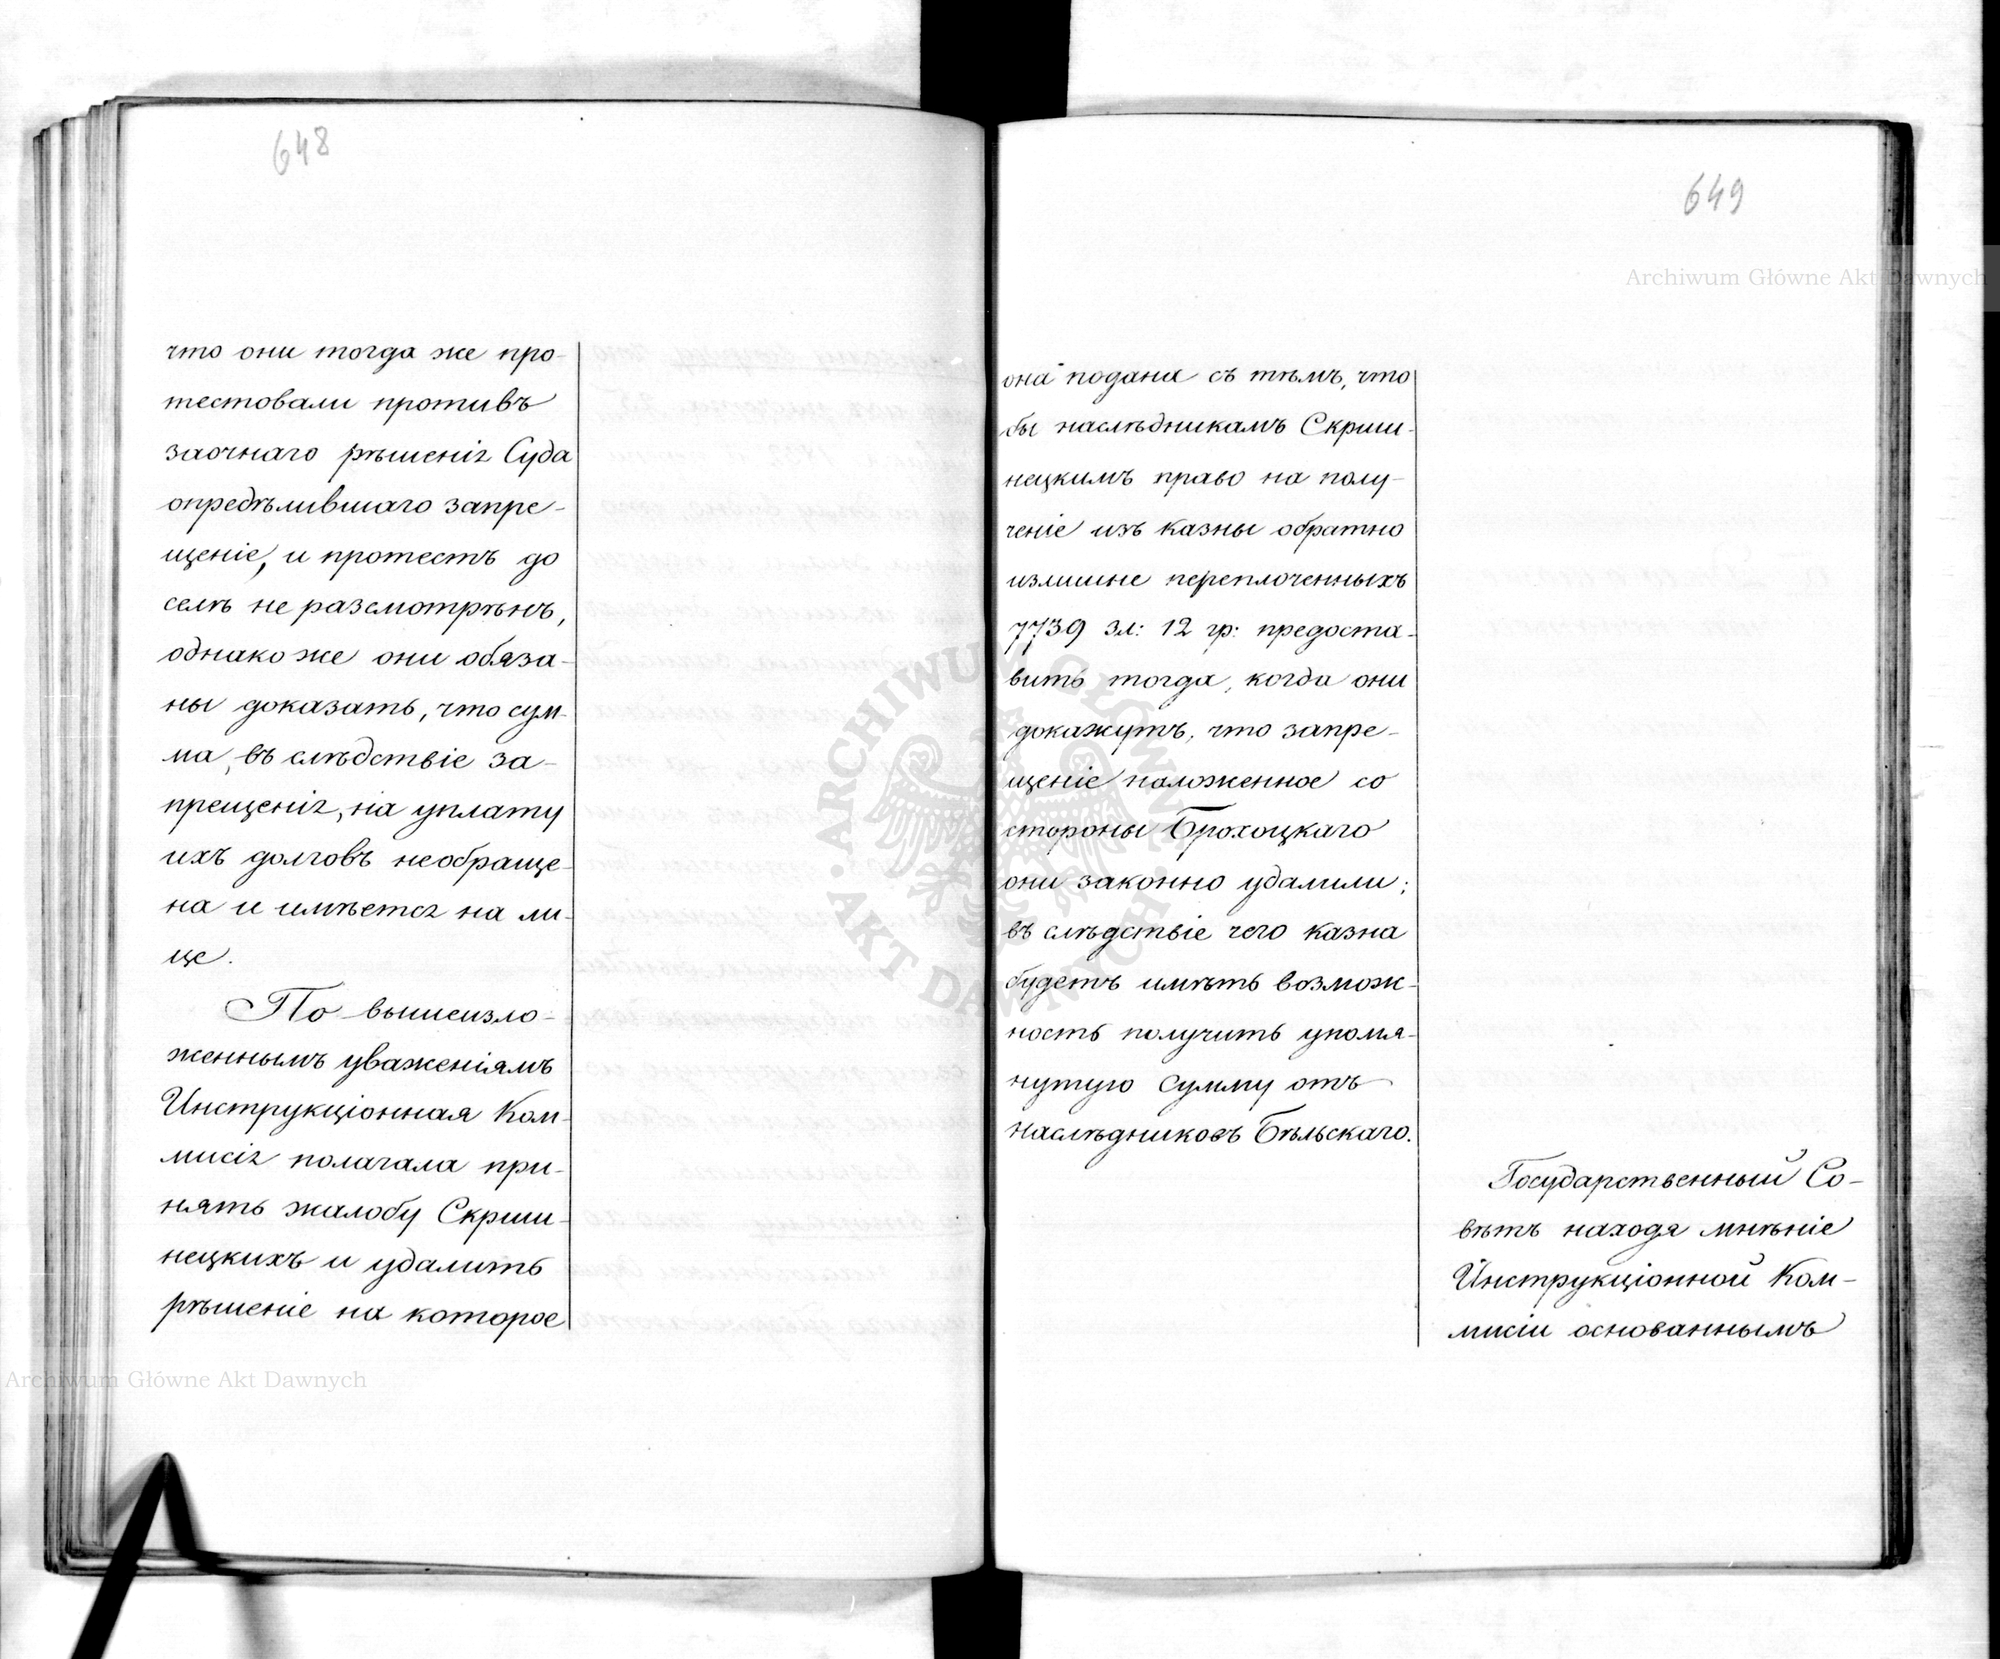 648
что они тогда же про-
тестовали противъ
заочнаго рѣшенія Суда
опредѣлившаго запре-
щеніе, и протестъ до
селѣ не разсмотрѣнъ,
однако же они обяза-
ны доказать, что сум-
ма, въ слѣдствіе за-
прещенія, на уплату
ихъ долговъ необраще-
на и имѣется на ли-
це.
По вышеизло-
женнымъ уваженіямъ
Инструкціонная Ком-
мисія полагала при-
нять жалобу Скрши-
нецкихъ и удалить
рѣшеніе на которое
649
она подана съ тѣмъ, что
бы наслѣдникамъ Скрши-
нецкимъ право на полу-
ченіе изъ казны обратно
излишне переплоченныхъ
7739 зл: 12 гр: предоста-
вить тогда, когда они
докажутъ, что запре-
щеніе наложенное со
стороны Брохоцкаго
они законно удалили;
въ слѣдствіе чего казна
будетъ имѣть возмож-
ность получить упомя-
нутую сумму отъ
наслѣдниковъ Бѣльскаго.
Государственный Со-
вѣтъ находя мнѣніе
Инструкціонной Ком-
мисіи основаннымъ
Archiwum Główne Akt Dawnych
Archiwum Główne Akt Dawnych
ARCHIWUM GŁÓWNE AKT DAWNYCH